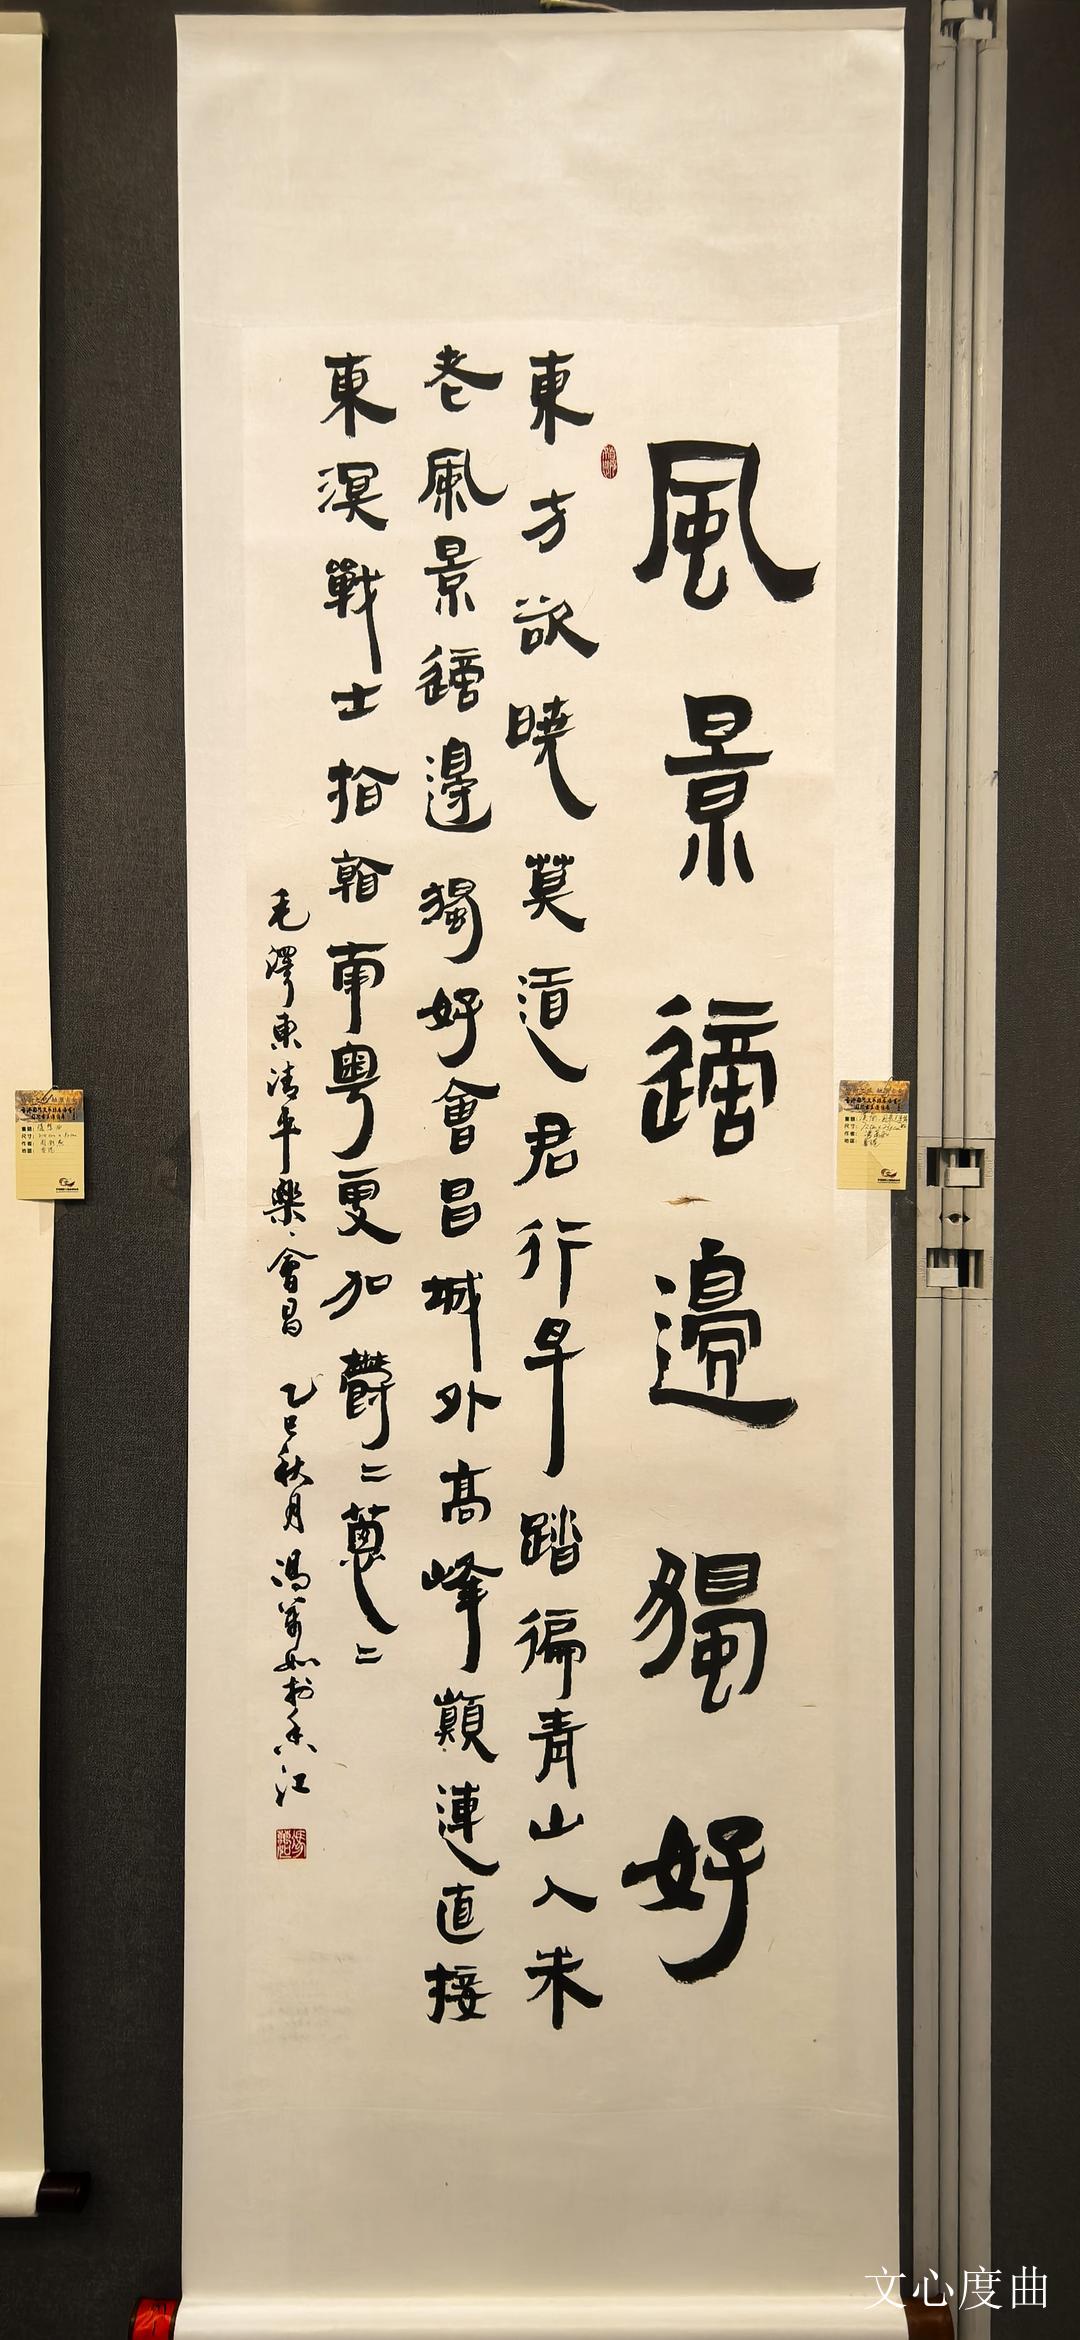 風景這邊獨好
東方欲曉莫道君行早踏徧青山人未
老風景這邊獨好會昌城外高峰巔連直接
東溟戰士指看南粵更加鬱二蔥二
毛澤東清平樂、會昌 乙巳秋月 馮萬如於香江
文心度曲